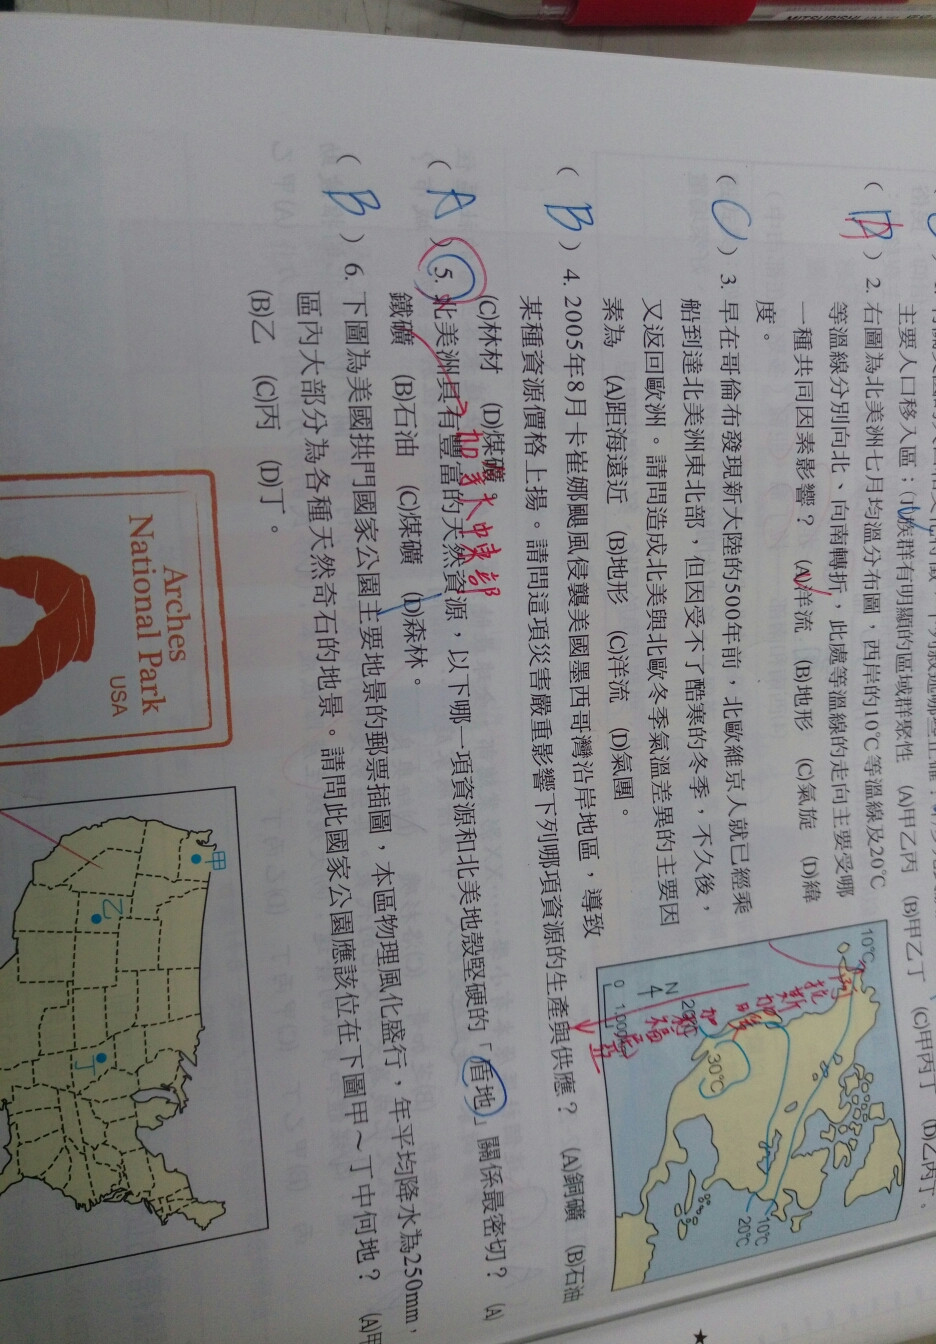 主要人口移入區；(丁)族群有明顯的區域群聚性 (A)甲乙丙 (B)甲乙丁 (C)甲丙丁 (D)乙丙丁。
( ) 2. 右圖為北美洲七月均溫分布圖，西岸的10℃等溫線及20℃
等溫線分別向北、向南轉折，此處等溫線的走向主要受哪
一種共同因素影響？ (A)洋流 (B)地形 (C)氣旋 (D)緯
度。
( C ) 3. 早在哥倫布發現新大陸的500年前，北歐維京人就已經乘
船到達北美洲東北部，但因受不了酷寒的冬季，不久後，
又返回歐洲。請問造成北美與北歐冬季氣溫差異的主要因
素為 (A)距海遠近 (B)地形 (C)洋流 (D)氣團。
( B ) 4. 2005年8月卡崔娜颶風侵襲美國墨西哥灣沿岸地區，導致
某種資源價格上揚。請問這項災害嚴重影響下列哪項資源的生產與供應？ (A)銅礦 (B)石油
(C)林材 (D)煤礦。
加拿大中東部
( A ) 5. 北美洲具有豐富的天然資源，以下哪一項資源和北美地殼堅硬的「盾地」關係最密切？ (A)
鐵礦 (B)石油 (C)煤礦 (D)森林。
( B ) 6. 下圖為美國拱門國家公園主要地景的郵票插圖，本區物理風化盛行，年平均降水為250mm，
區內大部分為各種天然奇石的地景。請問此國家公園應該位在下圖甲～丁中何地？ (A)甲
(B)乙 (C)丙 (D)丁。
10℃
20℃
30℃
10℃
20℃
N
0
Arches
National Park
USA
甲
乙
丁
MITSUBISHI
★